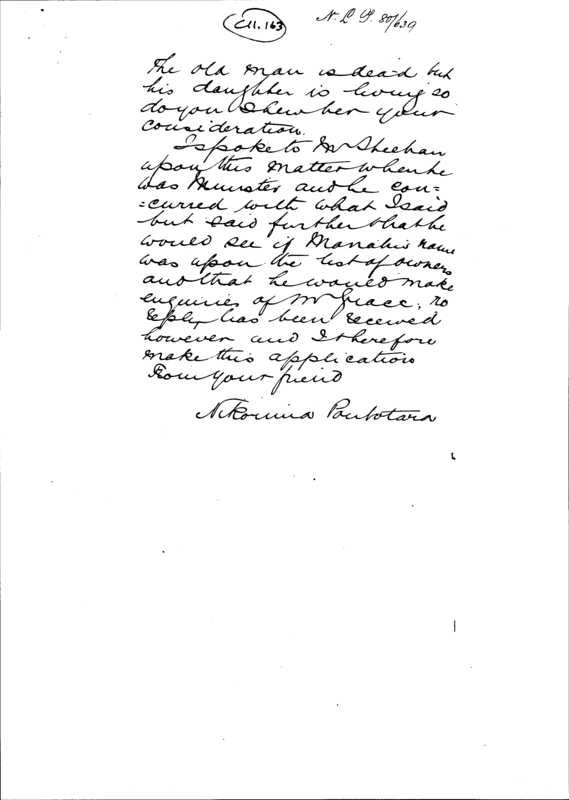 C11.163
N. L. P. 80/639
The old man is dead but
his daughter is living so
do you shew her your
consideration.
I spoke to Mr Sheehan
upon this matter when he
was Minister and he con=
=curred with what I said
but said further that he
would see if Manahi's name
was upon the list of owners
and that he would make
enquiries of Mr Grace; no
reply has been received
however and I therefore
make this application
From your friend
Poutotara